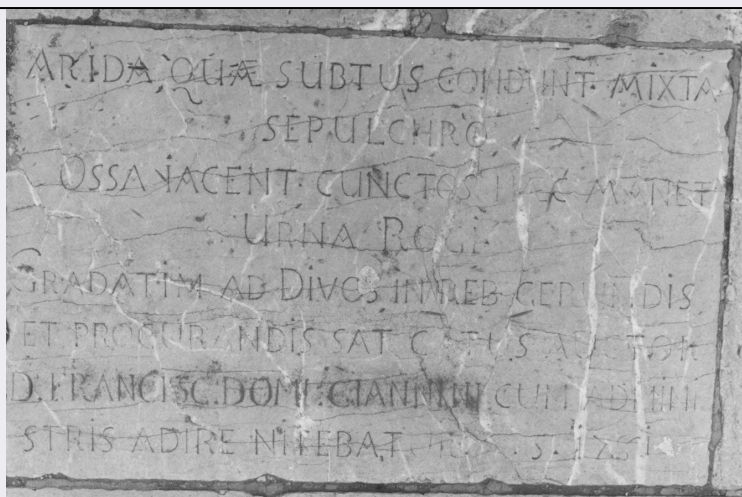 ARIDA, QUÆ SUBTUS CONDUNT MIXTA
SEPULCHRO
OSSA IACENT CUNCTOS HAC MANET
URNA ROGI
GRADATIM AD DIVOS IN REB. GERUNDIS
ET PROCURANDIS SAT CATUS
D. FRANCISC. DOM. GIANNINI CUM
STRIS ADIRE NITEBAT